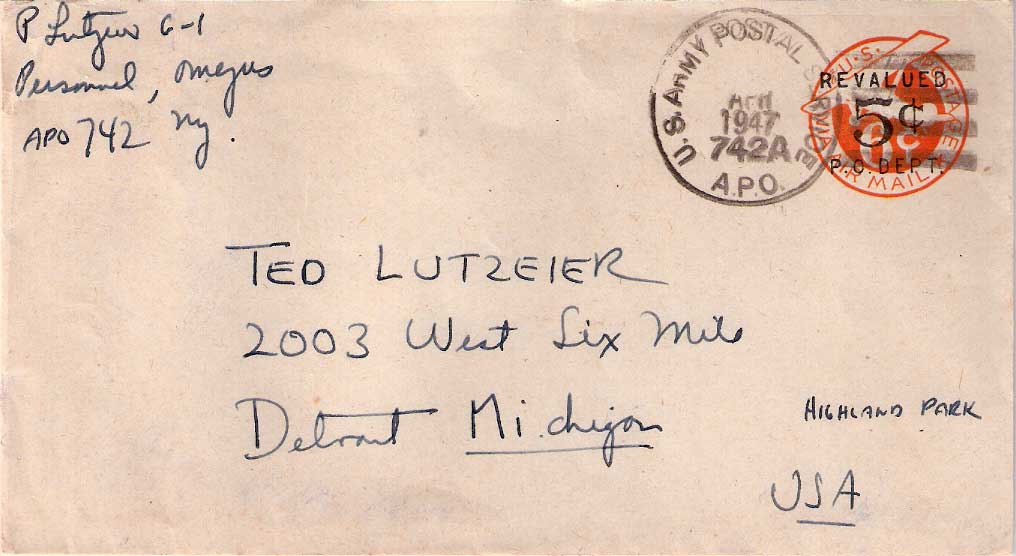 P Lutzeier G-1
Personnel, Omgus
APO 742 Ny.
U.S. ARMY POSTAL SERVICE
APR
1947
742A
A.P.O.
U.S. POSTAGE
REVALUED
5¢
6¢
P.O. DEPT.
VIA AIR MAIL
TED LUTZEIER
2003 West Six Mile
Detroit Michigan
HIGHLAND PARK
USA